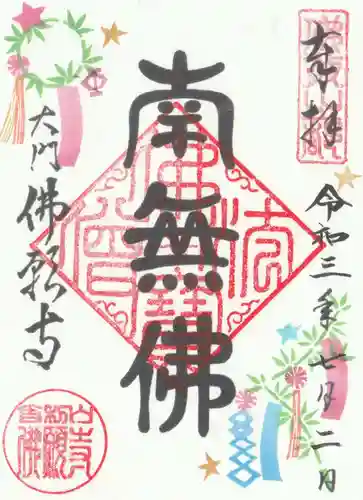 奉拝
令和三年七月二日
南無佛
大門
佛願寺
佛法僧寶